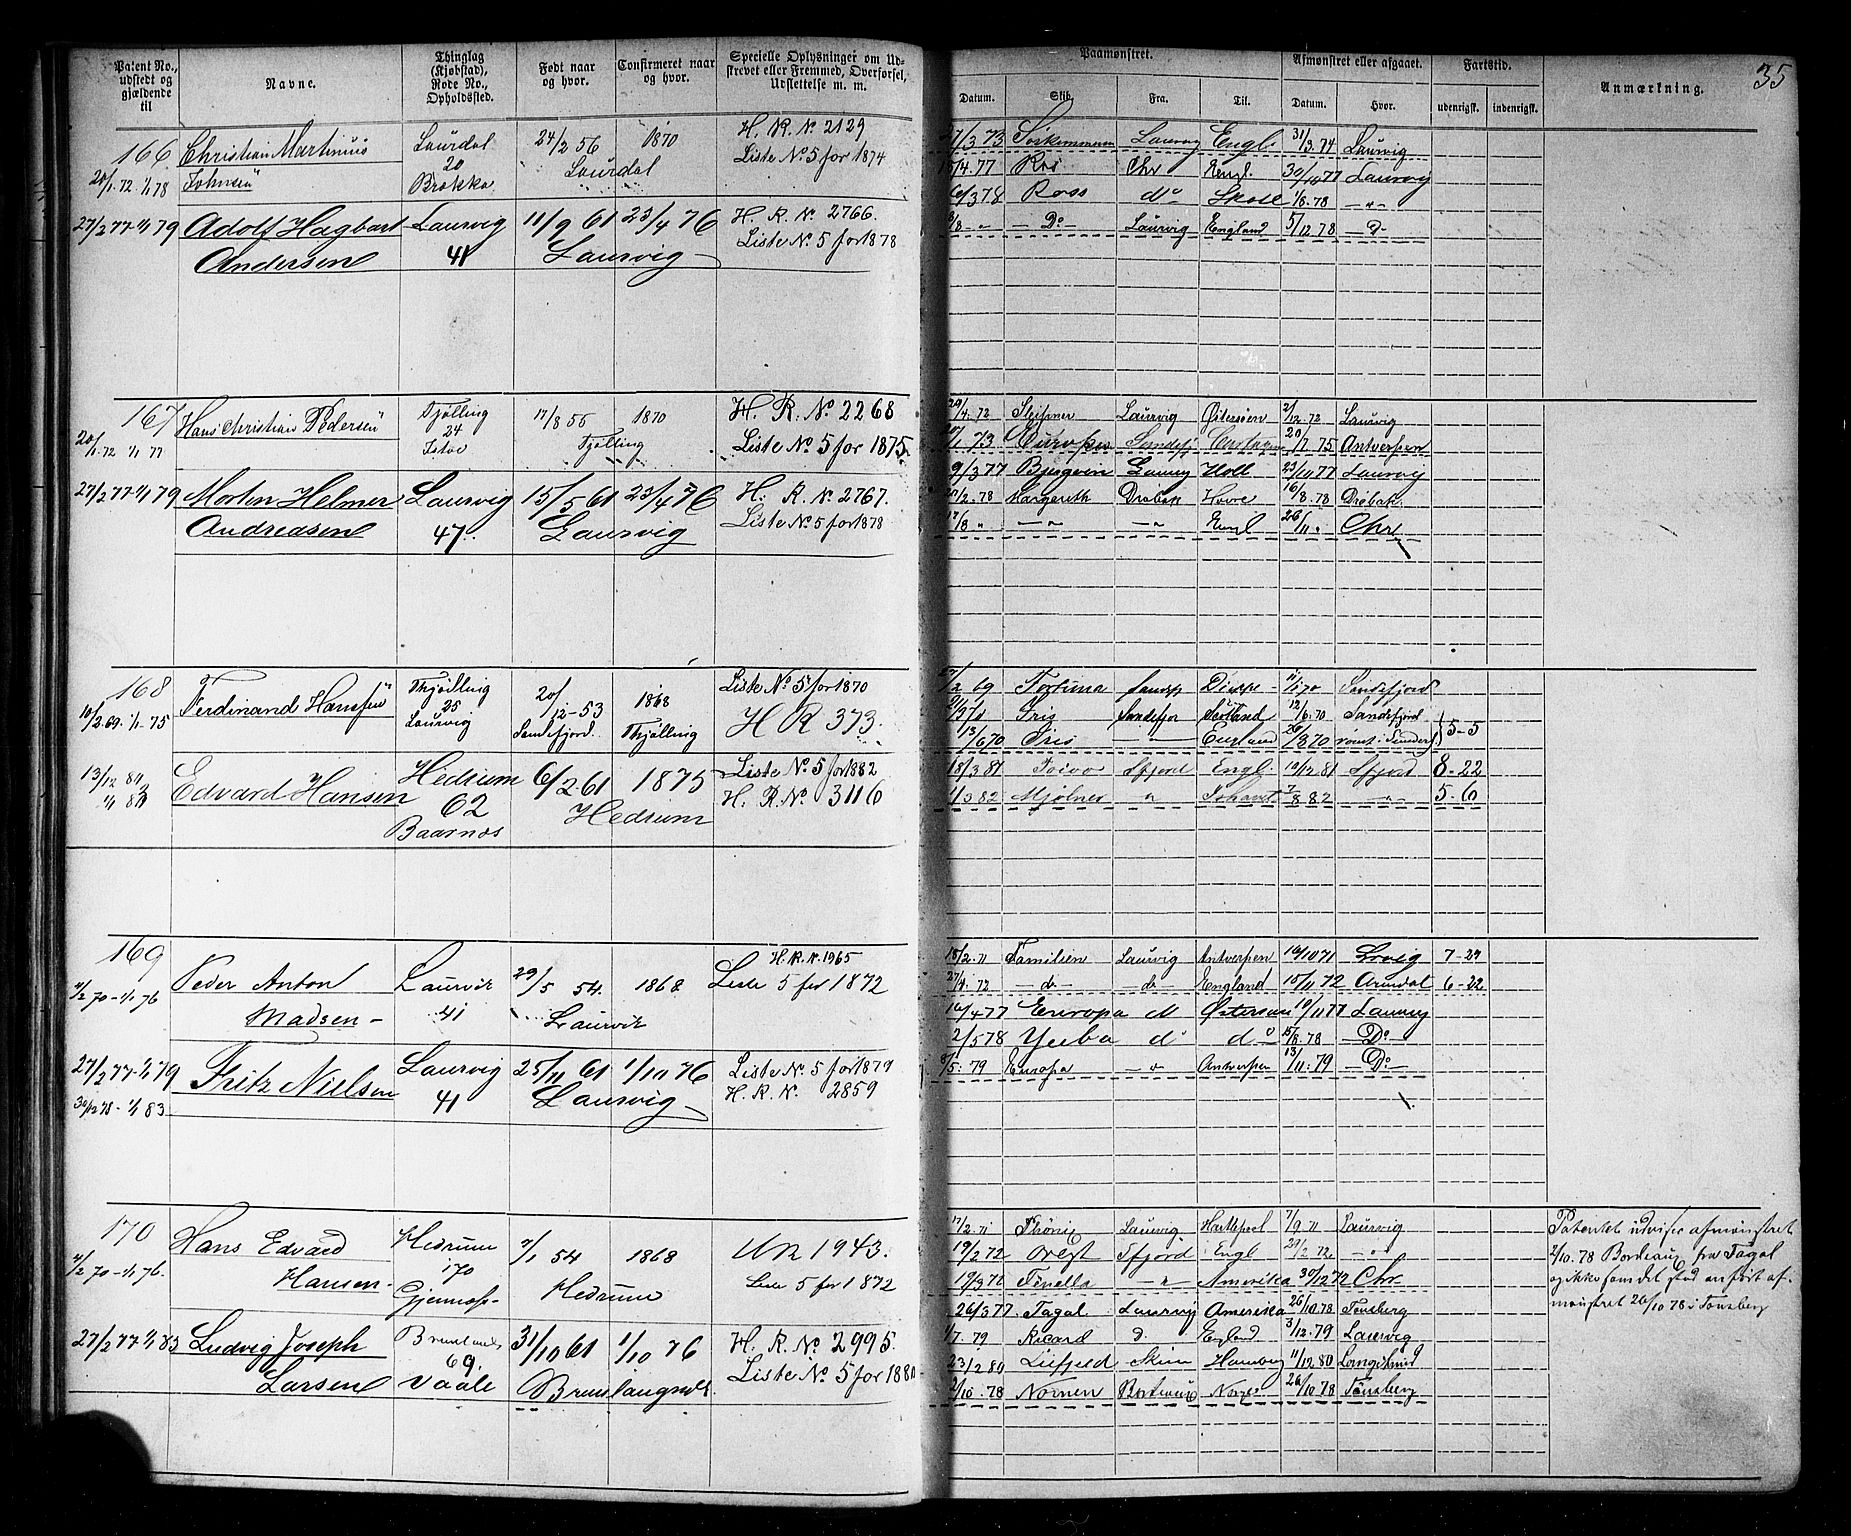 35
Patent No., udstedt og gjældende til
Navne.
Thinglag (Kjøbstad), Rode No., Opholdssted.
Født naar og hvor.
Confirmeret naar og hvor.
Specielle Oplysninger om Udskrevet eller Fremmed, Overførsel, Udslettelse m. m.
Paamønstret.
Afmønstret eller afgaaet.
Fartstid.
Anmærkning.
Datum.
Skib.
Fra.
Til.
Datum.
Hvor.
udenrigsk.
indenrigsk.
166 Christian Martinius Laurdal 24/2 56 1870 H. R. No 2129
20 Laurdal Liste No 5 for 1874
20/1.72 1/1 78 Johnsen Brekke
27/3 73 Laurvig Engl. 31/3.74 Laurvig
15/4.77 Ros Chr Engl. 30/10 77 Laurvig
6/3 78 Ross do 1/8.78 -"-
27/2 77-1/1 79 Adolf Hagbart Laurvig 11/9 61 23/4 76 H. R. No 2766.
Andersen 41 Laurvig Liste No 5 for 1878
8/8 - " - Do - Laurvig England 5/12 78 - Do -
167 Hans Christian Pedersen Tjølling 17/8 55 1870 H. R. No 2268
20/1.72 1/1 77 24 Tjølling Liste No 5 for 1875.
Istre
29/4.72 Sleipner Laurvig Østersøen 2/12.72 Laurvig
73 Europa Sandefj 20/7.75 Antverpen
9/3 77 Bjørgvin Laurvig Holl 23/10 77 Laurvig
27/2 77-1/1 79 Morten Helmer Laurvig 15/5 61 23/4 76 H. R. No 2767.
Andreasen 47 Laurvig Liste No 5 for 1878
/2.78 Margareth Drøbak 16/8.78 Drøbak
17/8 " - " - - " Engl 26/11 " Chr
168 Ferdinand Hanssen Thjølling 20/12-53 1868 Liste No 5 for 1870
10/2.69. 1/1.75 25 Laurvig Sandefjord Thjølling H R 373.
/2 69 Fortuna Sandefj 11/1 70 Sandefjord
Iris Sandefjor Scotland 12/6.70 Sandefjord
13/6 70 Iris England 26/8 70 rømt i 5-5
13/12 81 1/1 83 Edvard Hansen Hedrum 6/2 61 1875 Liste No 5 for 1882
62 Hedrum H. R. No 3116
Baarnes
18/3 81 Toivo Sfjord Engl. 10/12 81 Sfjord 8-22
1/3 82 Mjølner " 7/8 82 - " - 5-6
169 Peder Anton Laurvik 29/5 54. 1868. H. R. N. 1965
/2 70-1/1 76 Madsen - 41 Laurvik Liste 5 for 1872
15/2.71 Familien Laurvig Antverpen 10/10 71 Lrvig 7-27
27/4.72 - do - - do - England 15/11 72 Arendal 6-22
16/4 77 Europa Østersøen 10/11 77 Laurvig
27/2 77-1/1 79 Fritz Nielsen Laurvig 25/11 61 1/10 76 Liste No 5 for 1879
30/12 78-1/1 83. 41 Laurvig H. R. No. 2859
2/5 78 Yuba do do 15/8.78 - Do -
8/5.79 Europa - " Antverpen 13/11.79 - Do -
170 Hans Edvard Hedrum 7/1 54 1868 UR 1943.
/2 70-1/1 76. Hansen - 170 Hedrum Liste 5 for 1872
17/2.71 Fhønix Laurvig Hartlepool 7/9.71 Laurvig
19/2 72 Svegt Sfjord Engl 29/2 72 - " -
19/3 72 Finella - " - Amerika 30/12 72 Chr.
26/3 77. Tagal Laurvig Amerika 26/10.78 Tønsberg
27/2 77 1/1 83 Ludvig Joseph Brunlanæs 31/10 61 1/10 76 H. R. No 2995.
Larsen 69. Vaale Liste No 5 for 1880
/7.79 Ricard d. England 3/12.79 Laurvig
23/2 80 Liefjeld Skien Hamburg 11/12.80 Langesund
2/10.78 Nornen Bordeaux Norge 26/10 78 Tønsberg
Patentet udviser afmønstret
2/10.78 Bordeaux fra Tagal
og ikke som det stod anført af-
mønstret 26/10 78 i Tønsberg